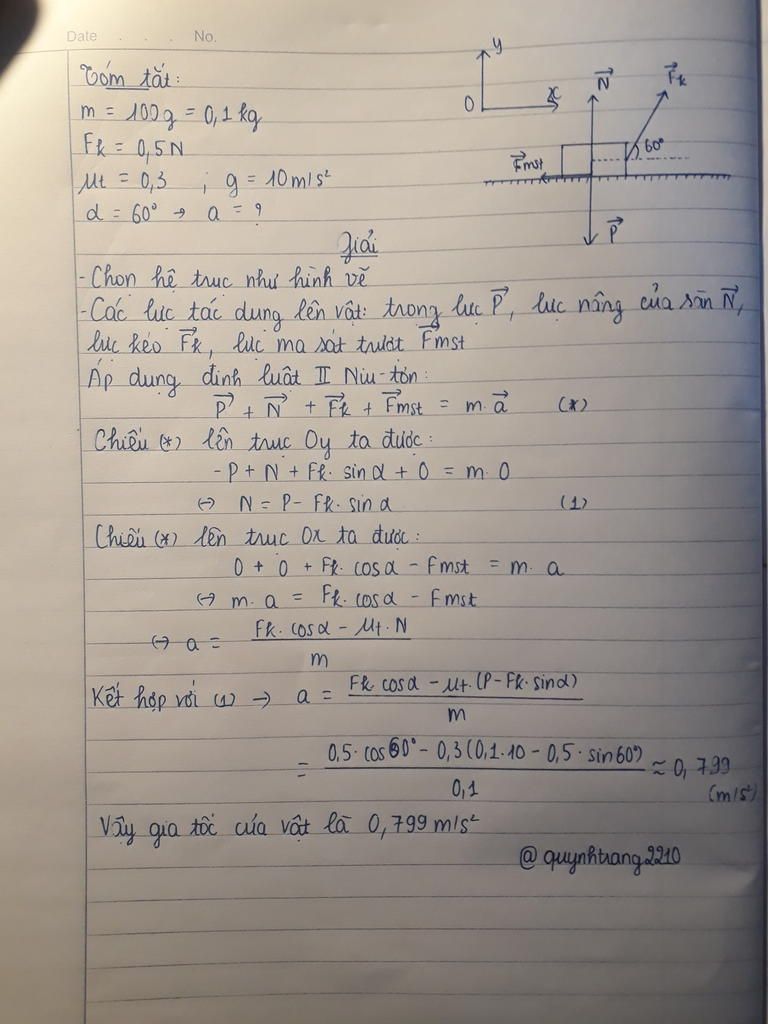 Date . . . No.
Tóm tắt:
m = 100g = 0,1 kg
Fk = 0,5 N
μt = 0,3 ; g = 10 m/s²
α = 60° → a = ?
y
O
x
N
Fk
60°
Fmst
P
Giải
- Chọn hệ trục như hình vẽ
- Các lực tác dụng lên vật: trọng lực P, lực nâng của sàn N,
lực kéo Fk, lực ma sát trượt Fmst
Áp dụng định luật II Niu-tơn:
P + N + Fk + Fmst = m. a (*)
Chiếu (*) lên trục Oy ta được:
-P + N + Fk. sin α + 0 = m. 0
⇔ N = P - Fk. sin α (1)
Chiếu (*) lên trục Ox ta được:
0 + 0 + Fk. cos α - Fmst = m. a
⇔ m. a = Fk. cos α - Fmst
⇔ a = Fk. cos α - μt. N
m
Kết hợp với (1) → a = Fk cos α - μt. (P - Fk. sin α)
m
= 0,5. cos 60° - 0,3 (0,1.10 - 0,5. sin 60°) ≈ 0,799
0,1
(m/s²)
Vậy gia tốc của vật là 0,799 m/s²
@quynhtrang2210